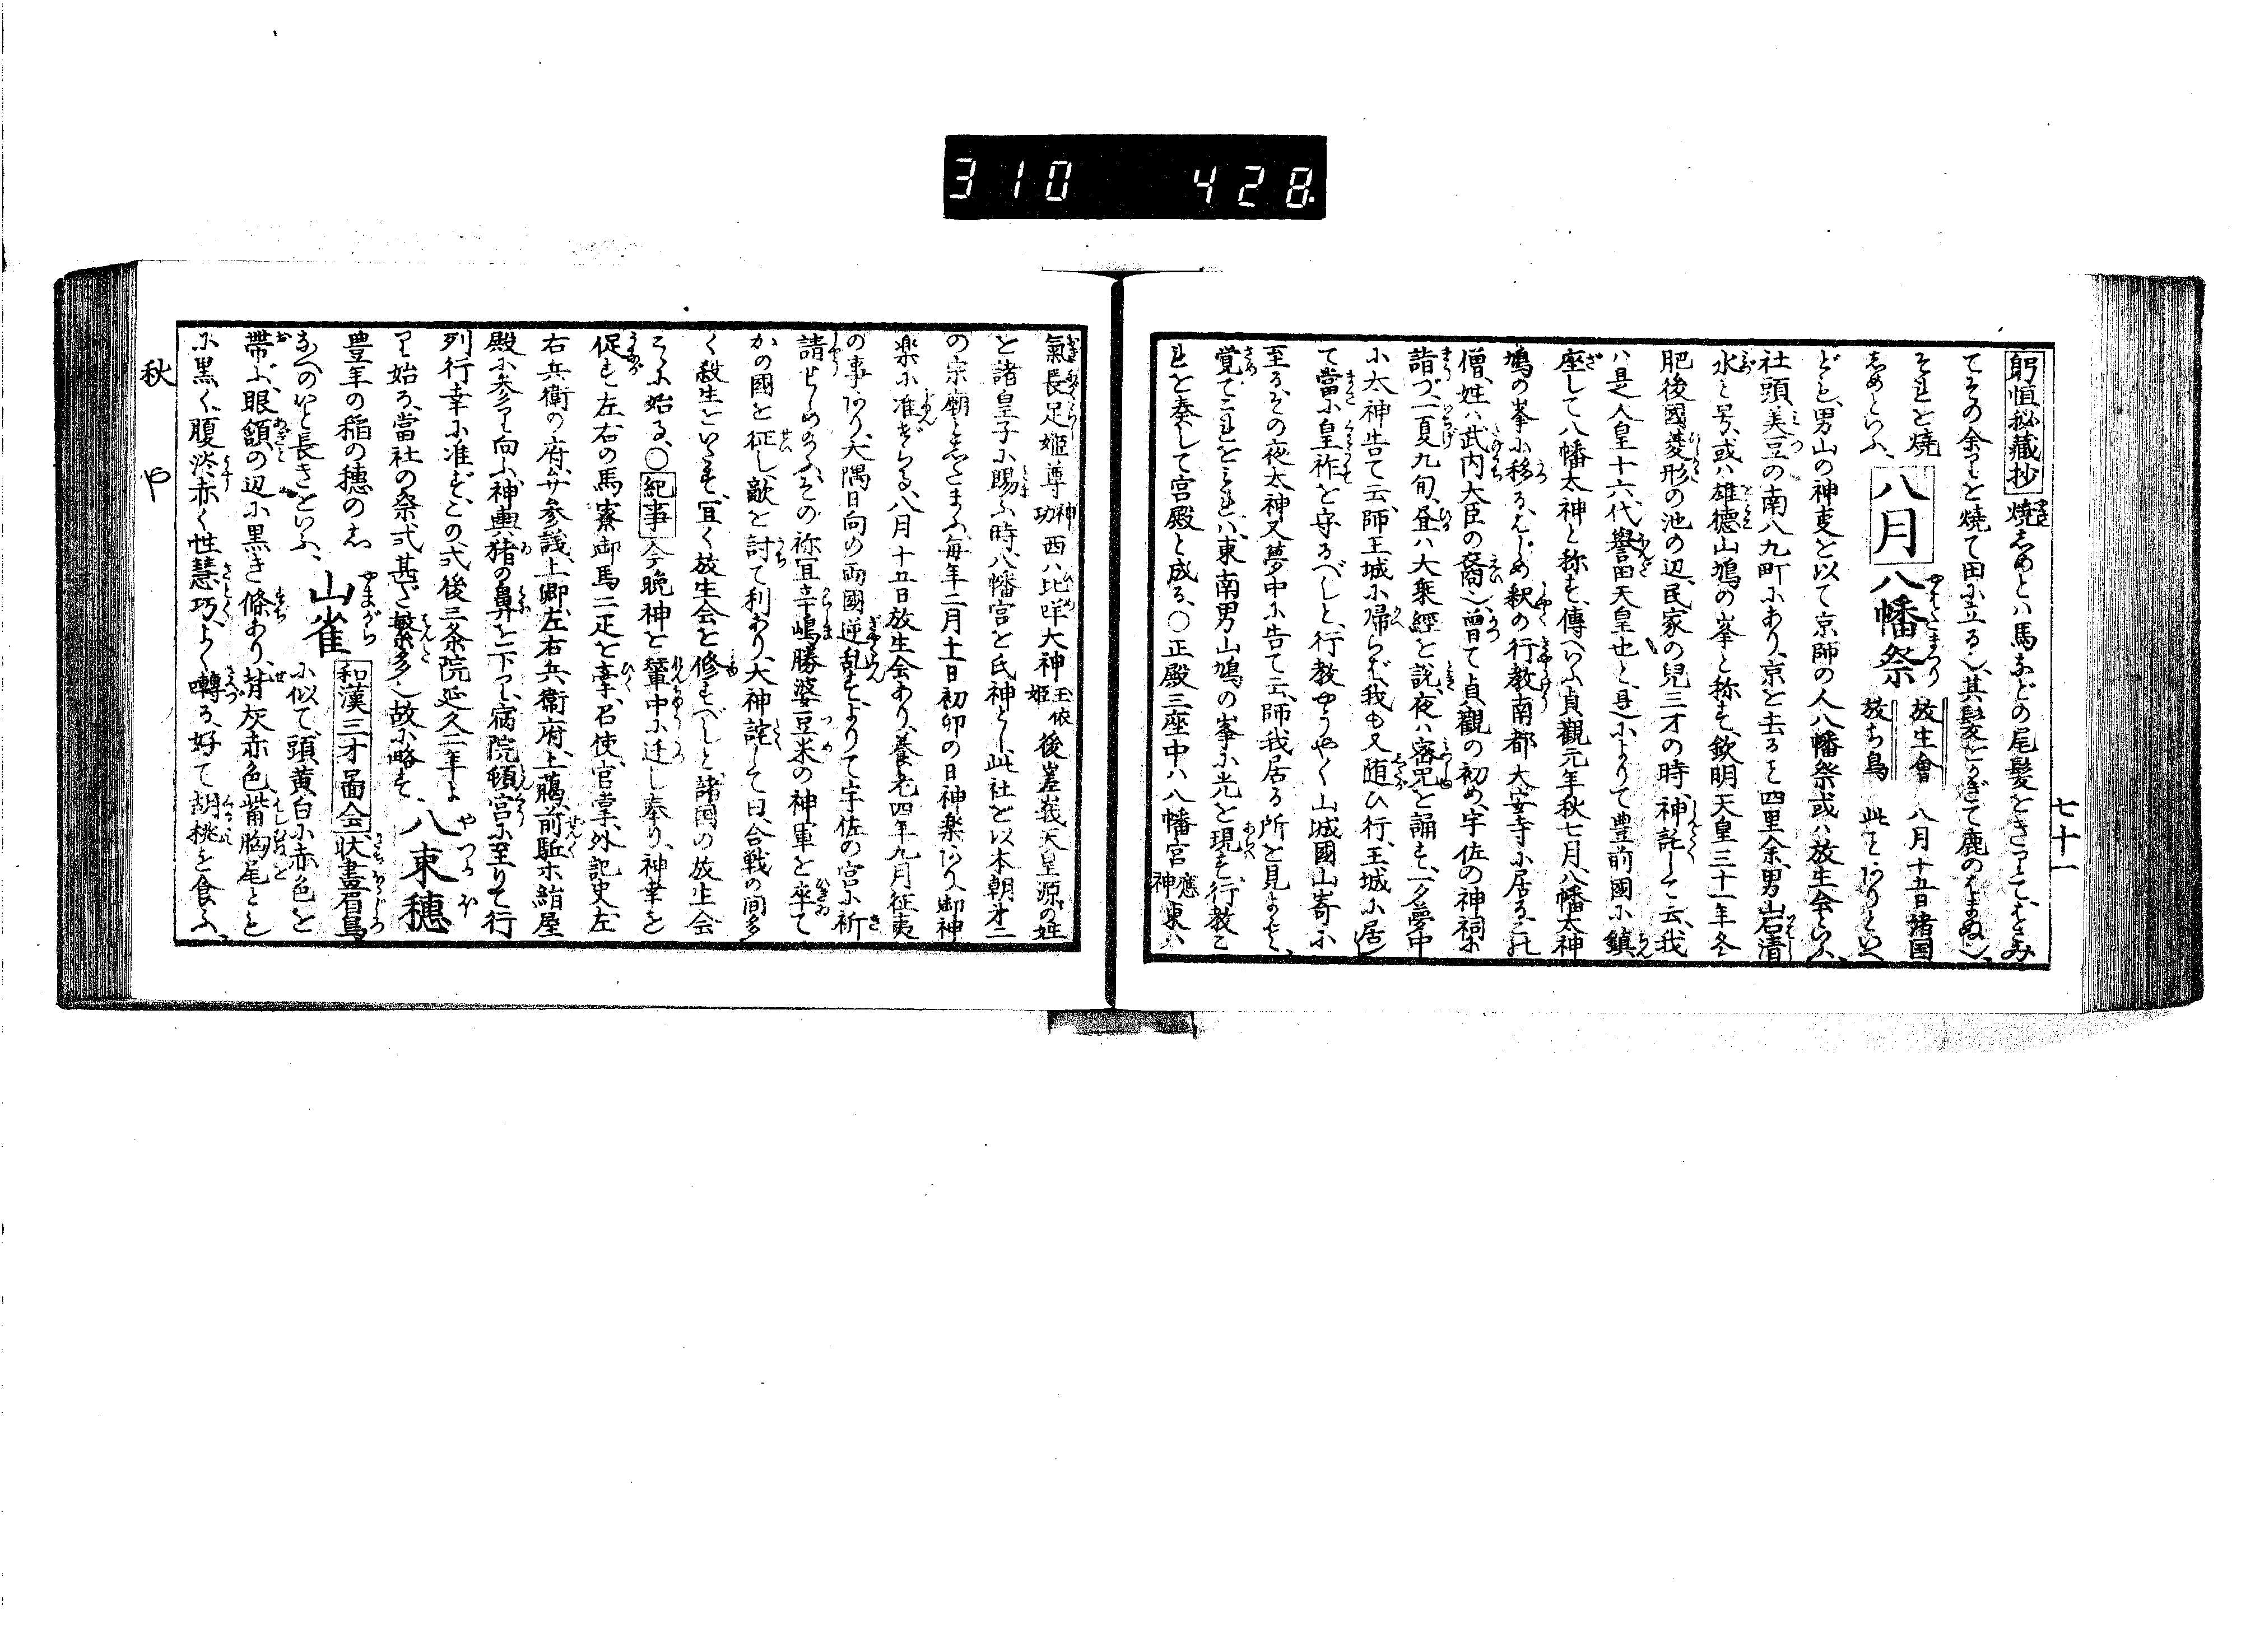 310 428
七十一
躬恒秘藏抄 焼しめとハ馬などの尾髪をきりて、はさみ
てその余りを焼て田に立る也、其髪をかぎて鹿のはまぬ也、
それを焼
しめといふ、
八月 八幡祭 放生會 放ち鳥 八月十五日諸国
此事ありといへ
ども、男山の神事を以て京師の人八幡祭或ハ放生会といふ、
社頭、美豆の南八九町にあり、京を去ること四里余、男山石清
水と号、或ハ雄徳山鳩の峯と称す、欽明天皇三十一年冬
肥後國菱形の池の辺、民家の兒三才の時、神託して云、我
ハ是人皇十六代誉田天皇也と、是によりて豊前國に鎮
座して八幡太神と称す、傳へいふ貞觀元年秋七月、八幡太神
鳩の峯に移る、はじめ釈の行教南都大安寺に居る、これ
僧、姓ハ武内大臣の裔也、曽て貞觀の初め、宇佐の神祠に
詣づ、一夏九旬、昼ハ大乗經を説、夜ハ密咒を誦す、一夕夢中
に太神告て云、師王城に帰らば、我も又随ひ行、王城に居し
て當に皇祚を守るべしと、行教やうやく山城國山嵜に
至る、その夜太神又夢中に告て云、師我居る所を見よと、
覚てこれをみれハ、東南男山鳩の峯に光を現す、行教こ
れを奏して宮殿と成る、○正殿三座中ハ八幡宮 應神 東ハ
氣長足姫尊 神功 西ハ比咩大神 玉依姫 後嵯峨天皇源の姓
を諸皇子に賜ふ時、八幡宮を氏神とし此社を以本朝才二
の宗廟としたまふ、毎年二月十一日初卯の日神楽あり、御神
楽に准ぜらる、八月十五日放生会あり、養老四年九月征夷
の事あり、大隅日向の両國逆乱す、よりて宇佐の宮に祈
請せしめ給ふ、その祢宜辛嶋勝婆豆米の神軍を率て
かの國を征し、敵を討て利あり、大神託して曰、合戦の間多
く殺生をいたす、宜く放生会を修すべしと、諸国の放生会
こゝに始る、○紀事 今晩神を輦中に迁し奉り、神幸を
促す、左右の馬寮御馬二疋を牽、召使、官掌、外記史、左
右兵衛の府、弁参議、上卿、左右兵衛府、上﨟、前駈ホ絹屋
殿に参り向ふ、神輿猪の鼻を下り、宿院頓宮に至りて行
列行幸に准ず、この式後三条院延久二年よ
り始る、當社の祭式甚だ繁多也、故に略す、 八束穂 やつかほ
豊年の稲の穂のし
なへのいと長きをいふ、 山雀 やまがら 和漢三才圖会、状畫眉鳥
に似て、頭黄白に赤色を
帯ぶ、眼頷の辺に黒き條あり、背灰赤色、觜胸尾とも
に黒く、腹淡赤く性慧巧、よく囀る、好て胡桃を食ふ、
秋 や